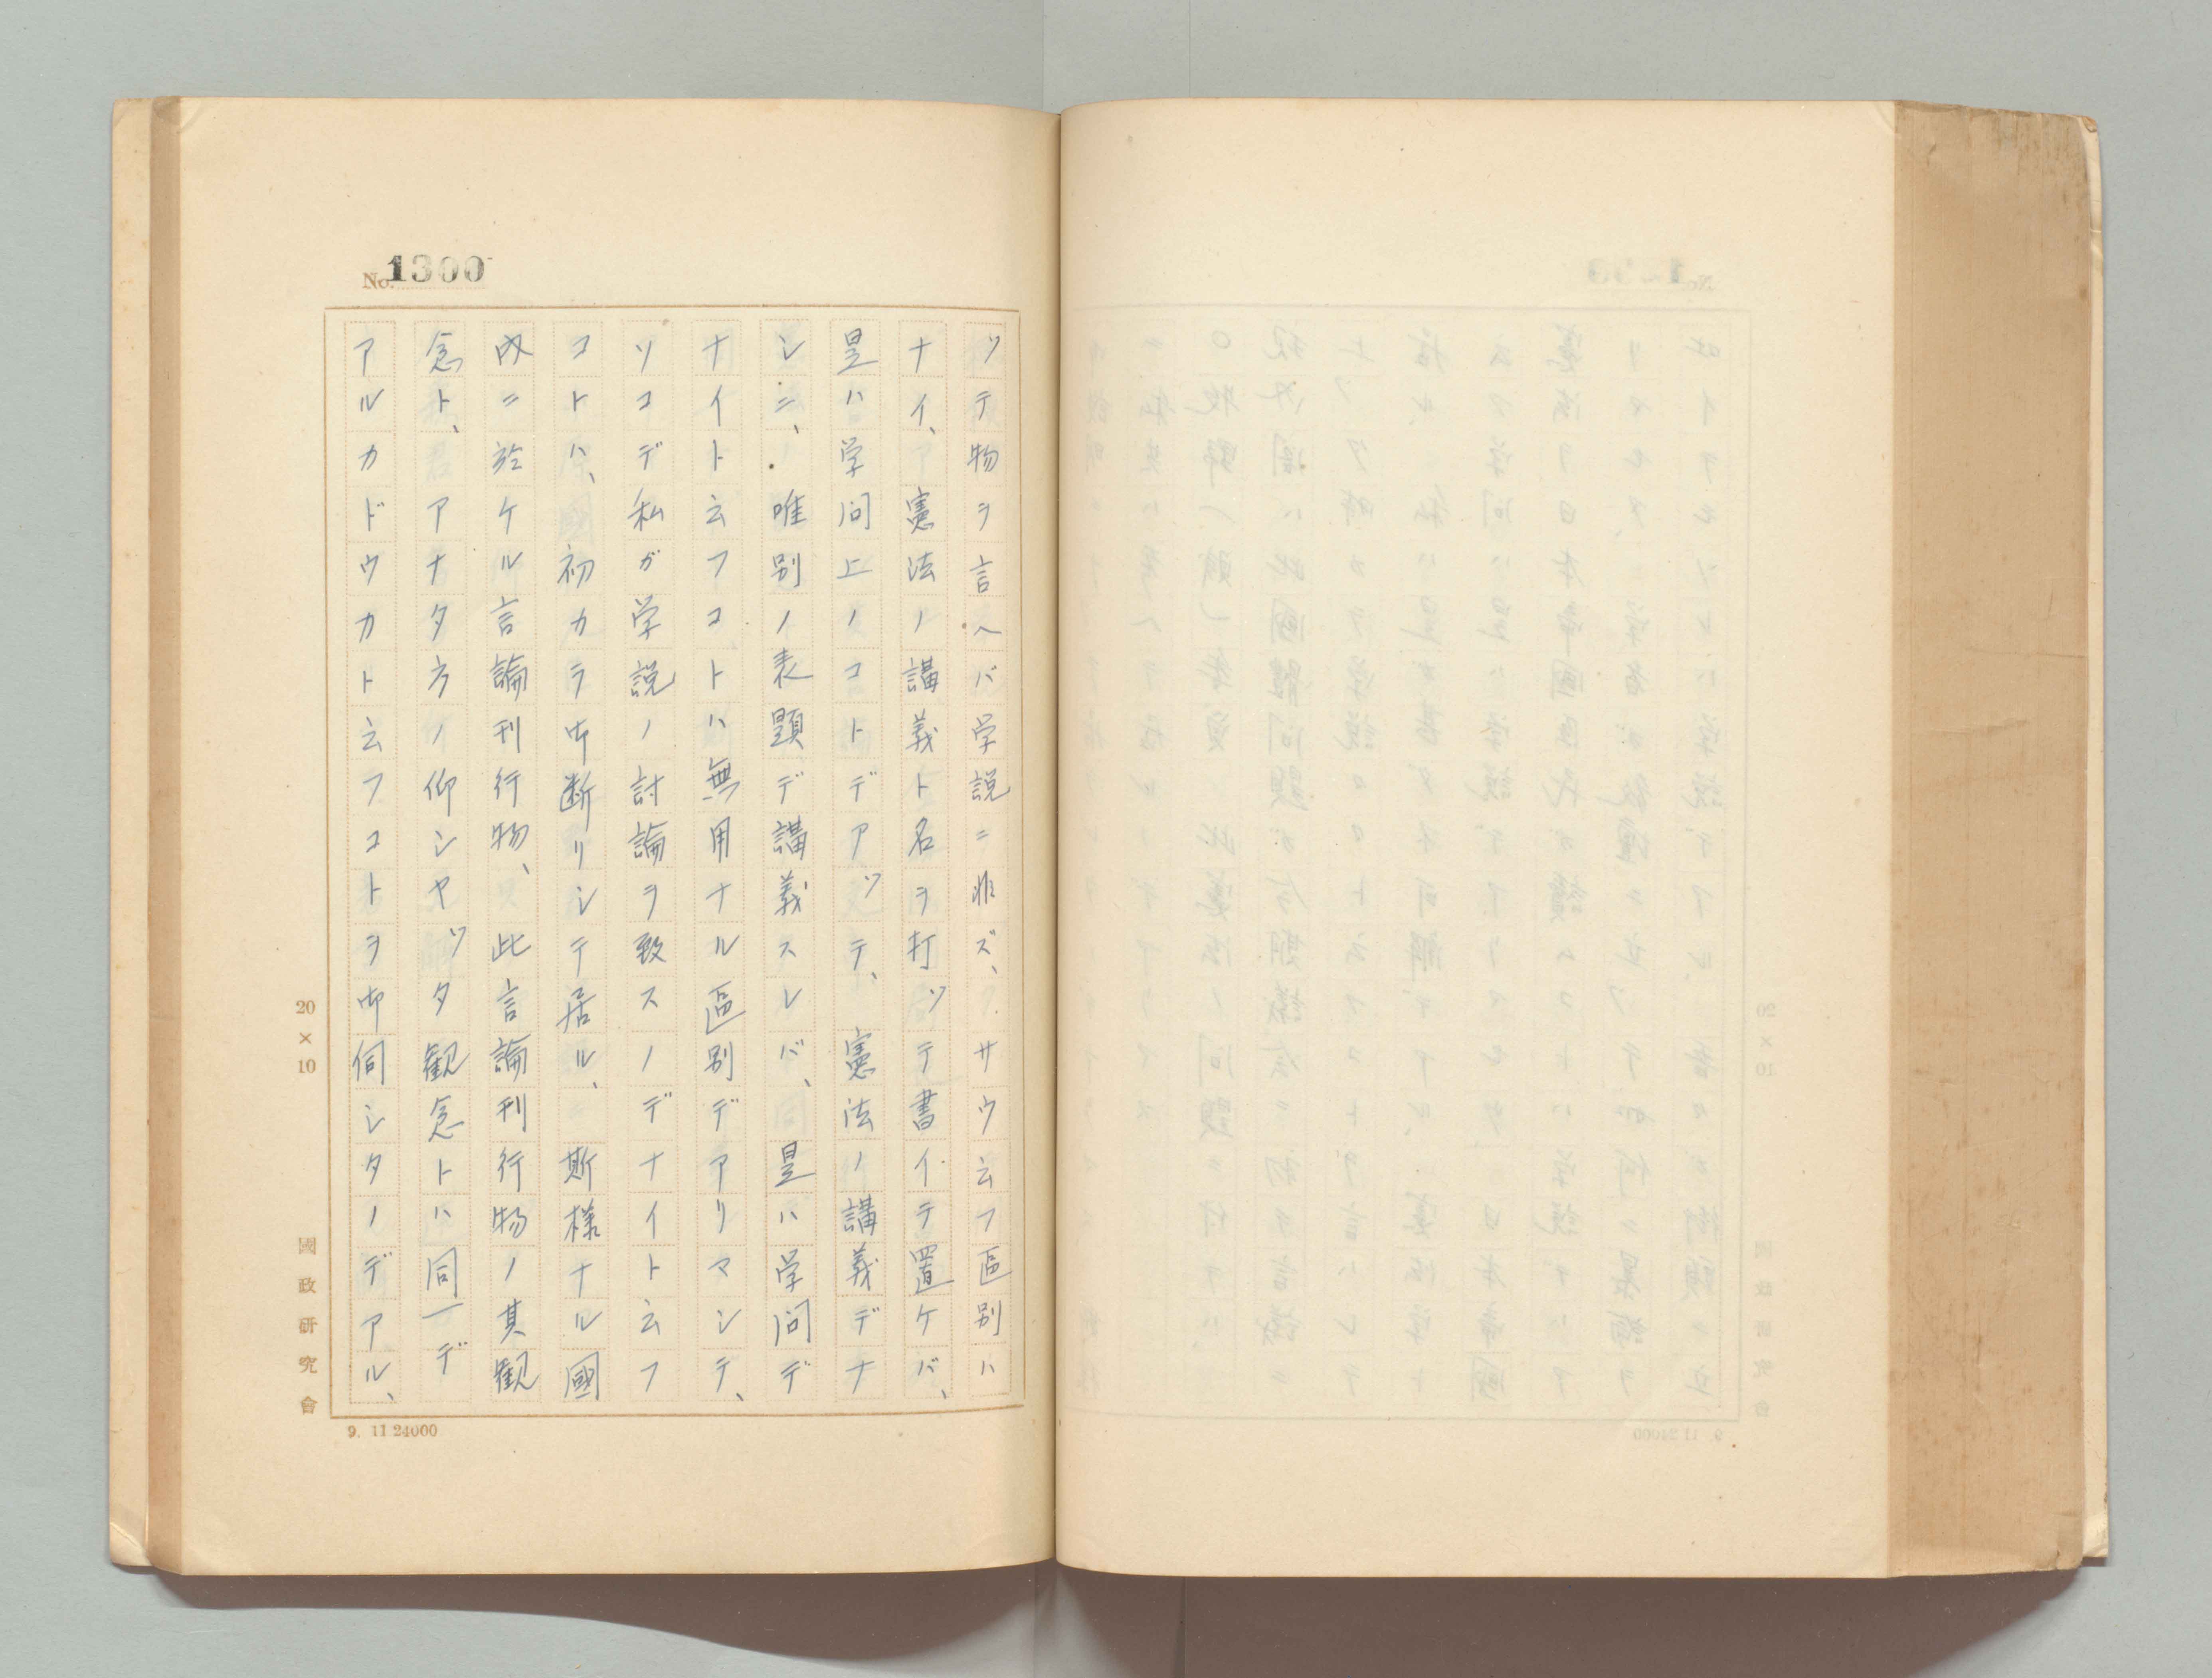 No. 1300
ツテ物ヲ言ヘバ学説ニ非ズ、サウ云フ區別ハ
ナイ、憲法ノ講義ト名ヲ打ツテ書イテ置ケバ、
是ハ学问上ノコトデアツテ、憲法ノ講義デナ
シニ、唯別ノ表題デ講義スレバ、是ハ学问デ
ナイト云フコトハ無用ナル區別デアリマシテ、
ソコデ私ガ学説ノ討論ヲ致スノデナイト云フ
コトハ、初カラ御断リシテ居ル、斯様ナル國
内ニ於ケル言論刊行物、此言論刊行物ノ其観
念ト、アナタ方ノ仰シヤツタ観念トハ同一デ
アルカドウカト云フコトヲ御伺シタノデアル、
20×10
國政研究會
9. 11 24000